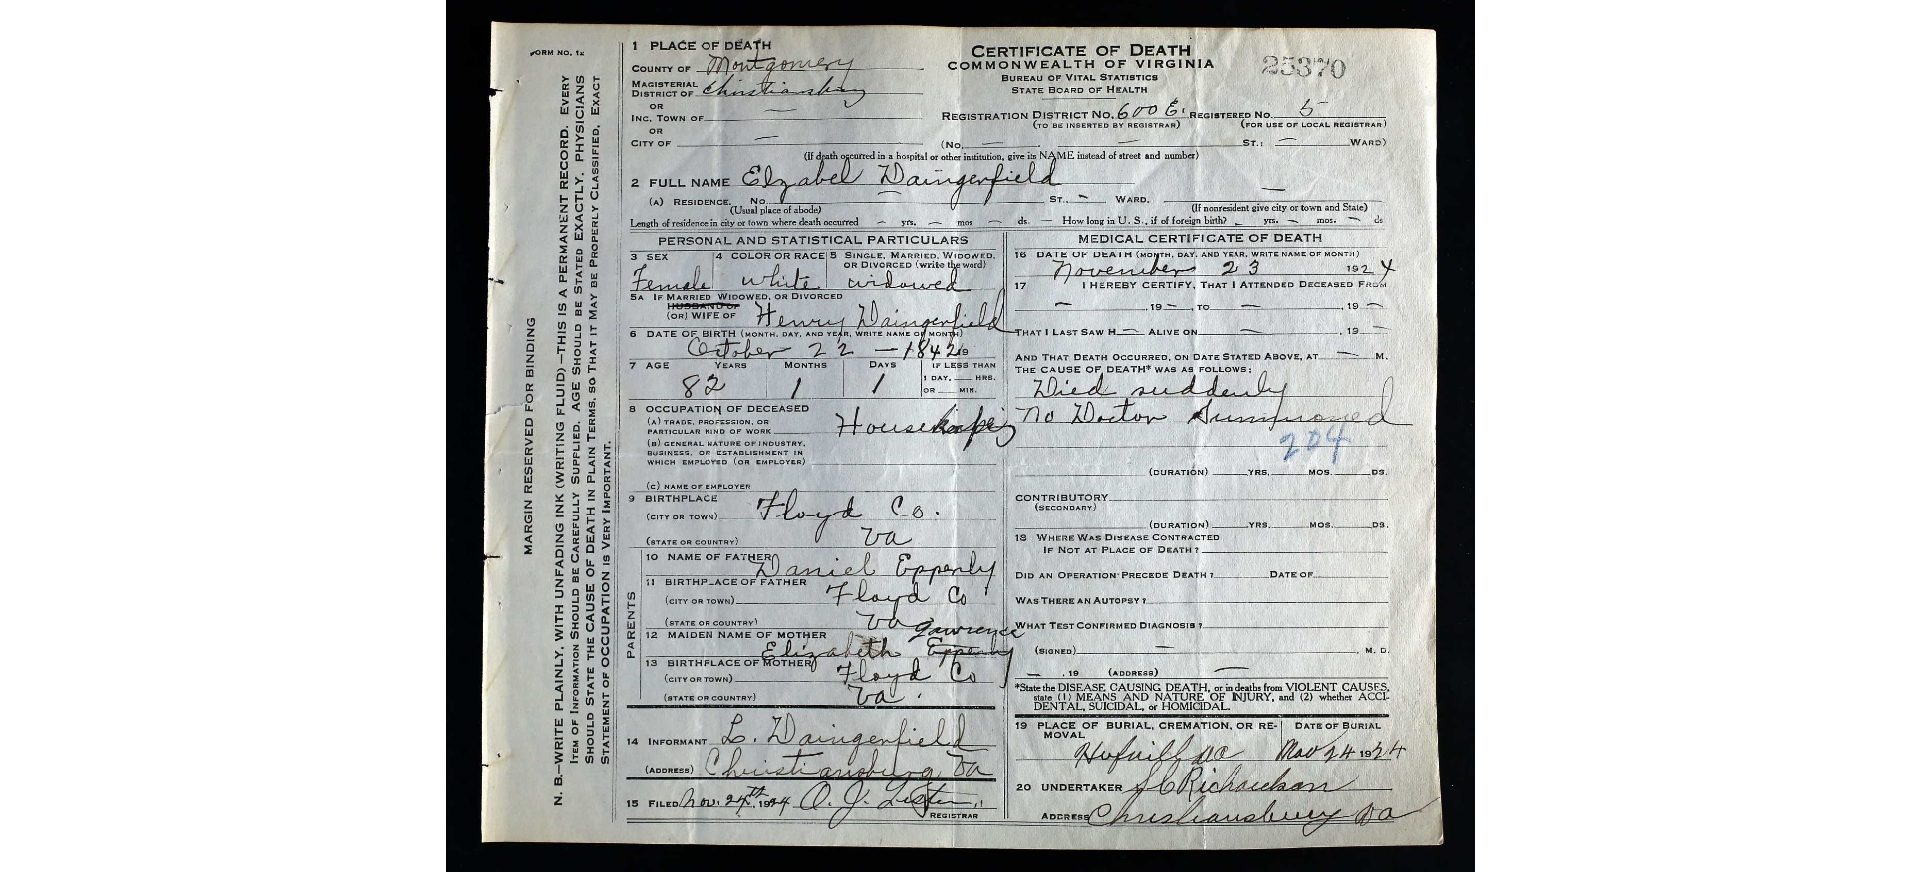 FORM NO. 12
MARGIN RESERVED FOR BINDING
N. B.—WRITE PLAINLY, WITH UNFADING INK (WRITING FLUID)—THIS IS A PERMANENT RECORD. EVERY
ITEM OF INFORMATION SHOULD BE CAREFULLY SUPPLIED. AGE SHOULD BE STATED EXACTLY. PHYSICIANS
SHOULD STATE THE CAUSE OF DEATH IN PLAIN TERMS, SO THAT IT MAY BE PROPERLY CLASSIFIED. EXACT
STATEMENT OF OCCUPATION IS VERY IMPORTANT.
1 PLACE OF DEATH
COUNTY OF Montgomery
MAGISTERIAL
DISTRICT OF Christiansburg
OR
INC. TOWN OF —
OR
CITY OF —
CERTIFICATE OF DEATH
COMMONWEALTH OF VIRGINIA
BUREAU OF VITAL STATISTICS
STATE BOARD OF HEALTH
25370
REGISTRATION DISTRICT NO. 600 E. REGISTERED NO. 5
(TO BE INSERTED BY REGISTRAR) (FOR USE OF LOCAL REGISTRAR)
(No. — — ST.: — WARD)
(If death occurred in a hospital or other institution, give its NAME instead of street and number)
2 FULL NAME Elzabel Daingerfield
(A) RESIDENCE. No. — ST. — WARD. —
(Usual place of abode) (If nonresident give city or town and State)
Length of residence in city or town where death occurred — yrs. — mos — ds. — How long in U. S., if of foreign birth? — yrs. — mos. — ds
PERSONAL AND STATISTICAL PARTICULARS
3 SEX 4 COLOR OR RACE 5 SINGLE, MARRIED, WIDOWED,
OR DIVORCED (write the word)
Female white widowed
5A IF MARRIED WIDOWED, OR DIVORCED
HUSBAND OF
(OR) WIFE OF Henry Daingerfield
6 DATE OF BIRTH (MONTH, DAY, AND YEAR, WRITE NAME OF MONTH)
October 22 — 1842
7 AGE YEARS MONTHS DAYS IF LESS THAN
1 DAY, HRS.
OR MIN.
82 1 1
8 OCCUPATION OF DECEASED
(A) TRADE, PROFESSION, OR
PARTICULAR KIND OF WORK Housekeeping
(B) GENERAL NATURE OF INDUSTRY,
BUSINESS, OR ESTABLISHMENT IN
WHICH EMPLOYED (OR EMPLOYER)
(C) NAME OF EMPLOYER
9 BIRTHPLACE
(CITY OR TOWN) Floyd Co.
(STATE OR COUNTRY) Va
PARENTS
10 NAME OF FATHER Daniel Epperly
11 BIRTHPLACE OF FATHER
(CITY OR TOWN) Floyd Co
(STATE OR COUNTRY) Va
12 MAIDEN NAME OF MOTHER Lawrence
Elizabeth Epperly
13 BIRTHPLACE OF MOTHER
(CITY OR TOWN) Floyd Co
(STATE OR COUNTRY) Va.
14 INFORMANT L. Daingerfield
(ADDRESS) Christiansburg Va
15 FILED Nov. 24th, 1924 O. J. Lester
REGISTRAR
MEDICAL CERTIFICATE OF DEATH
16 DATE OF DEATH (MONTH, DAY, AND YEAR, WRITE NAME OF MONTH)
November 23 1924
17 I HEREBY CERTIFY, THAT I ATTENDED DECEASED FROM
—, 19 —, TO —, 19 —
THAT I LAST SAW H — ALIVE ON —, 19 —
AND THAT DEATH OCCURRED, ON DATE STATED ABOVE, AT — M.
THE CAUSE OF DEATH* WAS AS FOLLOWS:
Died suddenly
No Doctor Summoned
204
(DURATION) YRS. MOS. DS.
CONTRIBUTORY
(SECONDARY)
(DURATION) YRS. MOS. DS.
18 WHERE WAS DISEASE CONTRACTED
IF NOT AT PLACE OF DEATH?
DID AN OPERATION PRECEDE DEATH? DATE OF
WAS THERE AN AUTOPSY?
WHAT TEST CONFIRMED DIAGNOSIS?
(SIGNED) —, M. D.
—, 19 (ADDRESS) —
*State the DISEASE CAUSING DEATH, or in deaths from VIOLENT CAUSES,
state (1) MEANS AND NATURE OF INJURY, and (2) whether ACCI-
DENTAL, SUICIDAL, or HOMICIDAL.
19 PLACE OF BURIAL, CREMATION, OR RE- DATE OF BURIAL
MOVAL
Va Nov 24 1924
20 UNDERTAKER Richardson
ADDRESS Christiansburg Va